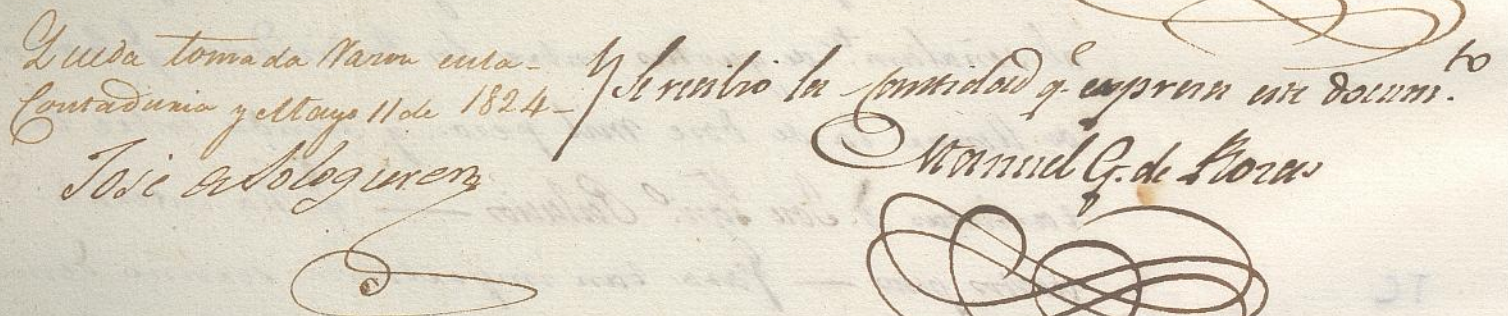 Queda tomada Razon en la
Contaduria y Mayo 11 de 1824
José
Se recibio la Cantidad q.e expresa este docum.to
Manuel G. de Rozas